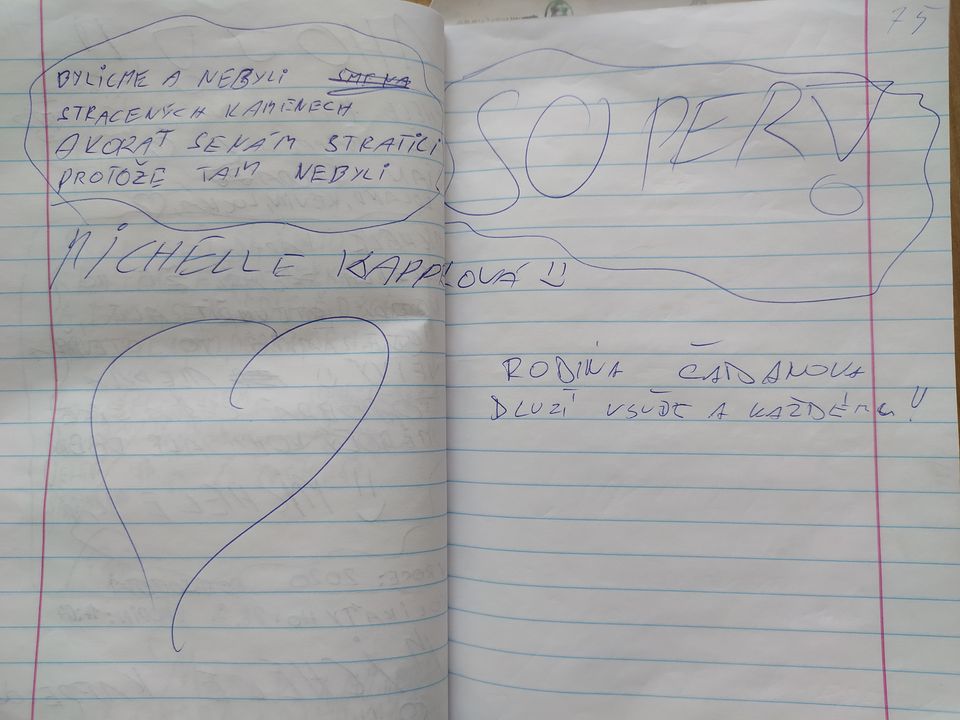 BYLICME A NEBYLI
STRACENÝCH KAMENECH
AKORÁT SEKÁM STRATILI
PROTOŽE TAM NEBYLI
MICHELLE KAPPLOVÁ !!
75
SO PERV
RODINA ČATDANOVA
DLUZÍ VSUDE A KAŽDÉMU !!